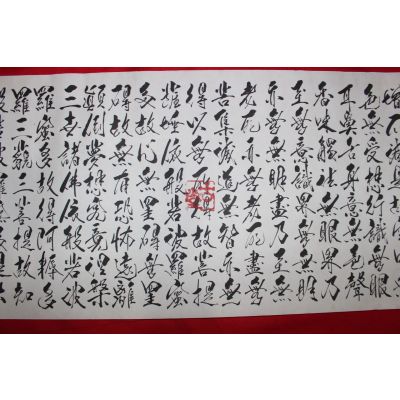 增不減是故空中無
色無受想行識無眼
耳鼻舌身意無色聲
香味觸法無眼界乃
至無意識界無無明
亦無無明盡乃至無
老死亦無老死盡無
苦集滅道無智亦無
得以無所得故菩提
薩埵依般若波羅蜜
多故心無罣礙無罣
礙故無有恐怖遠離
顛倒夢想究竟涅槃
三世諸佛依般若波
羅蜜多故得阿耨多
羅三藐三菩提故知
般若波羅蜜多是大